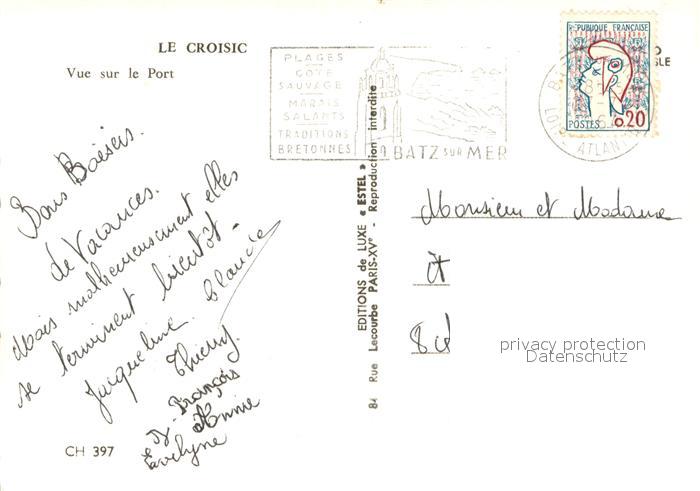 LE CROISIC
Vue sur le Port
PLAGES
COTE
SAUVAGE
MARAIS
SALANTS
TRADITIONS
BRETONNES
BATZ SUR MER
REPUBLIQUE FRANÇAISE
POSTES 0,20
LOIRE ATLANTI
Bons Baisers
de Vacances.
Mais malheureusement elles
se terminent bientôt -
Jacqueline. Claude
Thierry
François
Annie
Evelyne
CH 397
EDITIONS de LUXE « ESTEL » - Reproduction interdite
84 Rue Lecourbe PARIS-XVe
Monsieur et Madame
privacy protection
Datenschutz